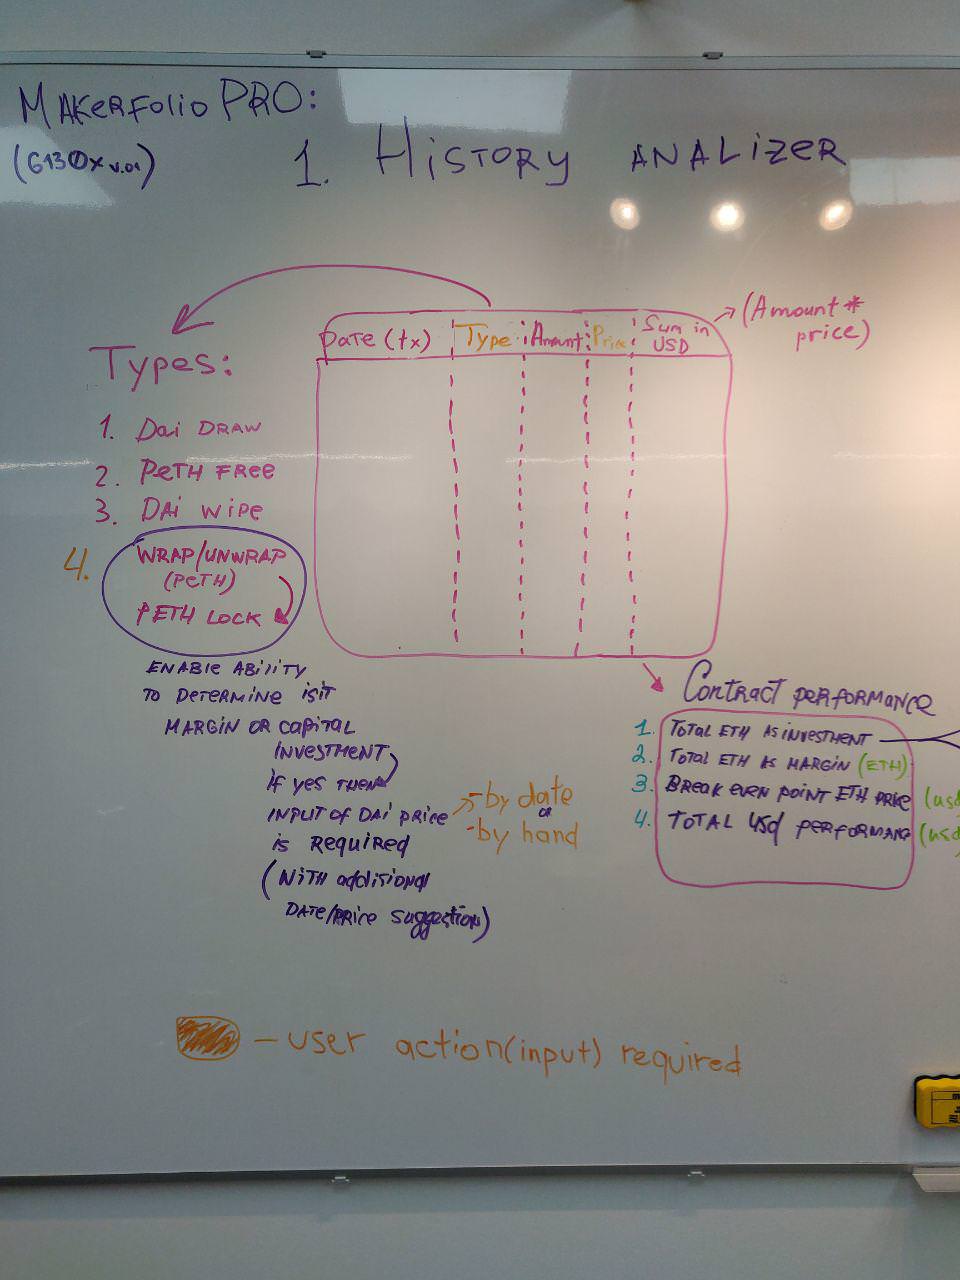 MAKERFOLIO PRO:
(G130x v.01)
1. HISTORY ANALIZER
Date (tx) Type Amount Price Sum in USD
(Amount * price)
Types:
1. Dai DRAW
2. PETH FREE
3. DAI WIPE
4. WRAP/UNWRAP
(PETH)
PETH LOCK
ENABLE ABILITY
TO DETERMINE ISIT
MARGIN OR CAPITAL
INVESTMENT
if yes THEN
INPUT OF DAI PRICE
is REQUIRED
(WITH addisional
DATE/PRICE suggestion)
- by date
or
- by hand
Contract PERFORMANCE
1. TOTAL ETH AS INVESTMENT
2. TOTAL ETH AS MARGIN (ETH)
3. BREAK EVEN POINT ETH PRICE (usd
4. TOTAL USD PERFORMANC (usd
- user action(input) required